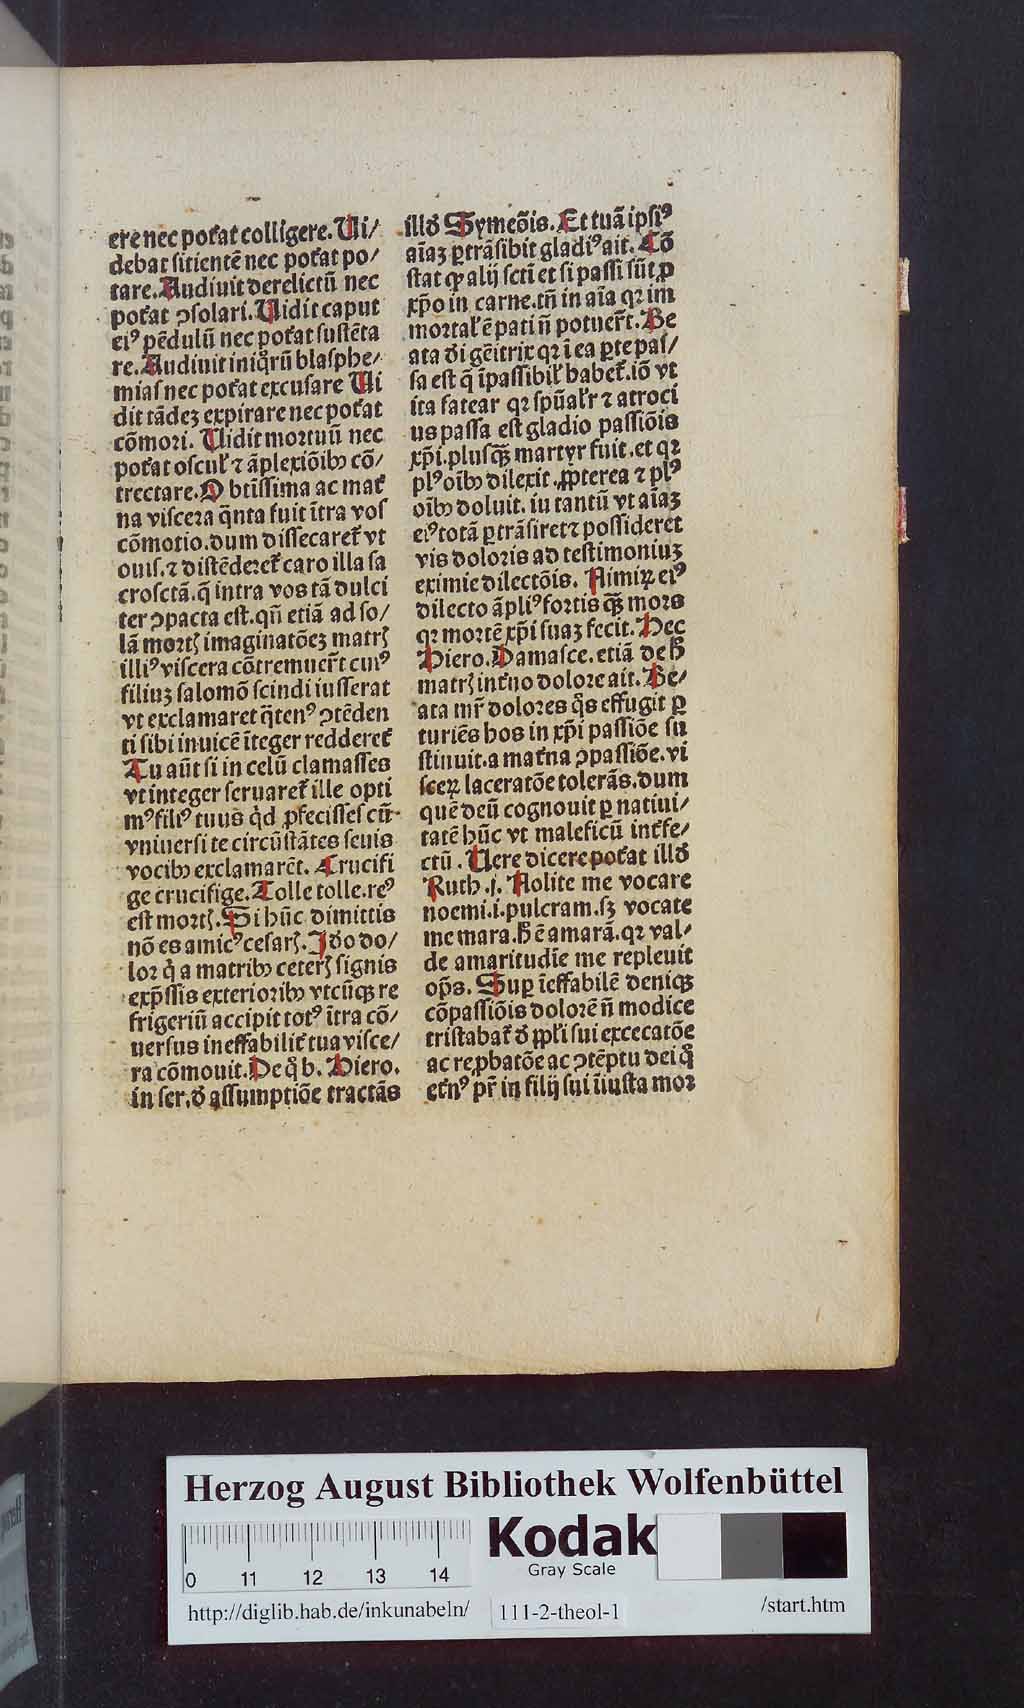 ere nec poťat colligere. Ui/
debat sitientẽ nec poťat po/
tare. Audiuit derelictũ nec
poťat ↄsolari. Uidit caput
eiꝰ pẽdulũ nec poťat sustẽta
re. Audiuit iniqͥrũ blasphe/
mias nec poťat excusare Ui
dit tãdeꝫ expirare nec poťat
cõmori. Uidit mortuũ nec
poťat osculʼ ⁊ ãplexiõibꝫ cõ/
trectare. O btĩssima ac mať
na viscera q̃nta fuit ĩtra vos
cõmotio. dum dissecareť vt
ouis. ⁊ distẽdereť caro illa sa
crosctã. q̃ intra vos tã dulci
ter ↄpacta est. qñ etiã ad so/
lã mortꝭ imaginatõeꝫ matrꝭ
illiꝰ viscera cõtremuer̃t cuiꝰ
filiuꝫ salomõ scindi iusserat
vt exclamaret q̃tenꝰ ↄtẽden
ti sibi inuicẽ ĩteger reddereť
Tu aũt si in celũ clamasses
vt integer seruareť ille opti
mꝰ filiꝰ tuus qͥd ꝓfecisses cũ
vniuersi te circũstãtes seuis
vocibꝫ exclamarẽt. Crucifi
ge crucifige. Tolle tolle. reꝰ
est mortꝭ. Si hũc dimittis
nõ es amicꝰ cesarꝭ. Iďo do/
lor qͥ a matribꝫ ceterꝭ signis
exp̃ssis exterioribꝫ vtcũqꝫ re
frigeriũ accipit totꝰ ĩtra cõ/
uersus ineffabiliť tua visce/
ra cõmouit. De qͦ b. Hiero.
in ser. ď assumptiõe tractãs
illď Symeõis. Et tuã ipsiꝰ
aĩaꝫ ꝑtrãsibit gladiꝰ ait. Cõ
stat ꝙ alij scti et si passi sũt ꝓ
xp̃o in carne. tñ in aĩa qꝛ im
mortalʼ ẽ pati ñ potuer̃t. Be
ata di gẽitrix qꝛ ĩ ea ꝑte pas/
sa est q̃ ĩpassibilʼ habeť. iõ vt
ita fatear qꝛ spũalʼr ⁊ atroci
us passa est gladio passiõis
xp̃i. plusqꝫ martyr fuit. et qꝛ
plꝰ oĩbꝫ dilexit. ꝓpterea ⁊ plꝰ
oĩbꝫ doluit. iu tantũ vt aĩaꝫ
eiꝰ totã ꝑtrãsiret ⁊ possideret
vis doloris ad testimoniuꝫ
eximie dilectõis. Nimiꝝ eiꝰ
dilecto ãpliꝰ fortis qꝫ mors
qꝛ mortẽ xp̃i suaꝫ fecit. Hec
Hiero. Damasce. etiã de ħ
matrꝭ inťno dolore ait. Be/
ata mr̃ dolores qͦs effugit ꝑ
turiẽs hos in xp̃i passiõe su
stinuit. a maťna ↄpassiõe. vi
sceꝝ laceratõe tolerãs. dum
quẽ deũ cognouit ꝑ natiui/
tatẽ hũc vt maleficũ inťfe/
ctũ. Uere dicere poťat illď
Ruth .j. Nolite me vocare
noemi. i. pulcram. sꝫ vocate
me mara. ħ ẽ amarã. qꝛ val/
de amaritudĩe me repleuit
op̃s. Suꝑ ĩeffabilẽ deniqꝫ
cõpassiõis dolorẽ ñ modice
tristabať ď ppl̃i sui excecatõe
ac reꝓbatõe ac ↄtẽptu dei qͥ
eťnꝰ pr̃ in filij sui iniusta mor
Herzog August Bibliothek Wolfenbüttel
Kodak
Gray Scale
0 11 12 13 14
http://diglib.hab.de/inkunabeln/ 111-2-theol-1 /start.htm